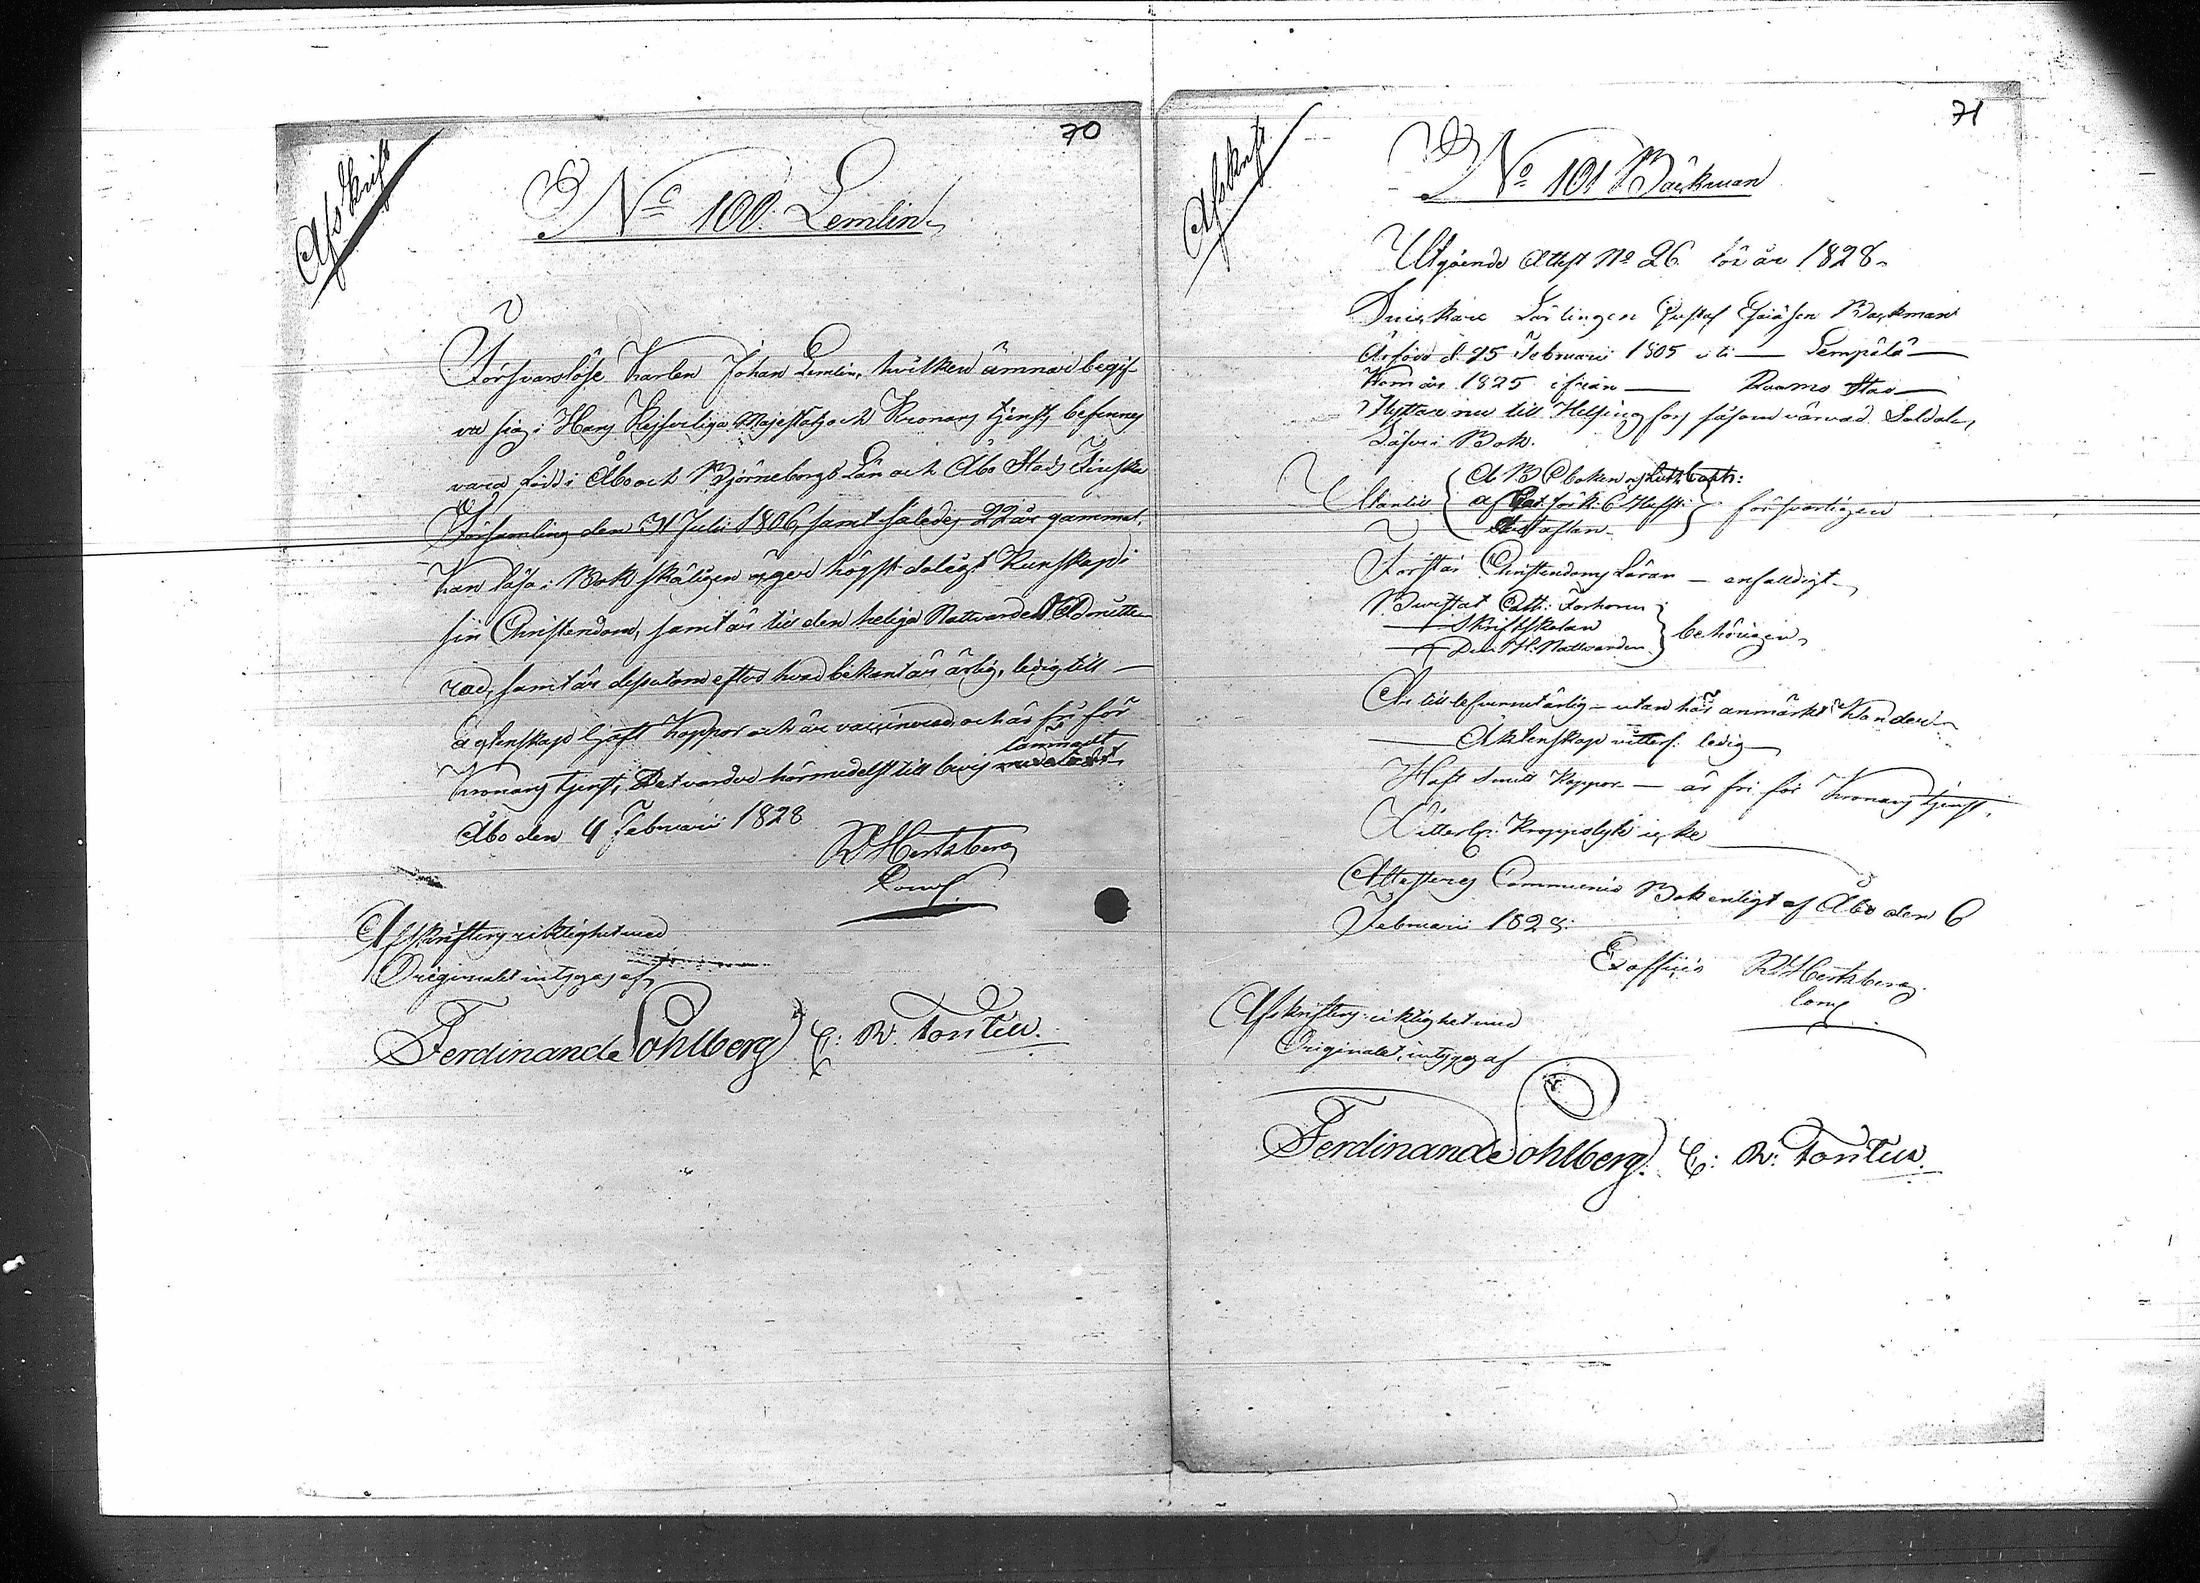 70
Afskrift
No 100. Lemlin
Försvarslöse Karlen Johan Lemlin, hvilken ämnar begif
va sig i Hans Kejserliga Majestäts och Kronans tjenst, befinnes
vara född i Åbo och Björneborgs Län och Åbo Stads Finska
Församling den 31 Julii 1806, samt således 22 år gammal.
Han läsa i Bok skäligen äger högst dåligt Kunskap i
sin Christendom, samt är till den heliga Nattvarden Admitte
rad, samt är dessutom efter hvad bekant är ärlig, ledig till
ägtenskap haft Koppor och är vaccinerad, och är fri för
Kronans tjenst, Det varder härmedelst till bevis lämnadt
Åbo den 4 Februarii 1828
W Hertzberg
Coms.
Afskriftens riktighet med
Originalet intygas af
Ferdinand Sohlberg E: W. Tontin.
71
Afskrift
No 101 Bäckman
Utgående Attest No 26 för år 1828
Lärlingen Gustaf Esaiasen Backman
Är född d. 25 Februarii 1805 uti — Lempälä —
Kom år 1825 ifrån — Raumo Stad —
Flyttar nu till Helsingfors såsom värvad Soldat,
Läser i Bok.
Utantill A B C boken
försvarligen
Förstår Christendoms Läran — enfaldigt
Bivistat Cath: Förhören
— Skriftskolan
— Den H. Nattvarden
behörigen
Är till lefvernet ärlig — utan här anmärkt Klander
— Äktenskap vitterl: ledig —
Haft Smitt Koppor — är fri för Kronans tjenst,
Vitterl: Kroppslyte icke
Attesteras Communio Bok enligt af Åbo den 6
Februarii 1828.
Ex officio W Hertzberg
Coms.
Afskriftens riktighet med
Originalet, intygas af
Ferdinand Sohlberg. E: W: Tontin.